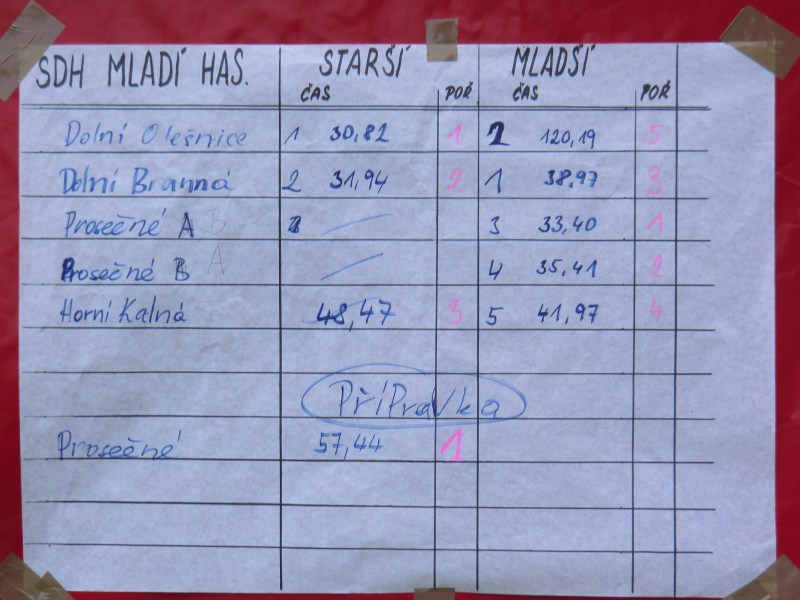 SDH MLADÍ HAS. STARŠÍ MLADŠÍ
ČAS POŘ ČAS POŘ
Dolní Olešnice 1 30,82 1 2 120,19 5
Dolní Branná 2 31,94 2 1 38,97 3
Prosečné A B 3 33,40 1
Prosečné B A 4 35,41 2
Horní Kalná 48,47 3 5 41,97 4
Přípravka
Prosečné 57,44 1